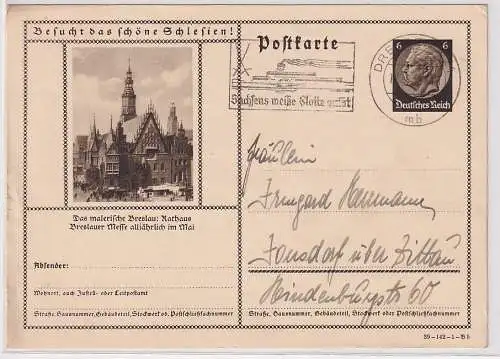 Besucht das schöne Schlesien!
Postkarte
Sachsens weiße Flotte
DRE
6 6
Deutsches Reich
Das malerische Breslau: Rathaus
Breslauer Messe alljährlich im Mai
Absender:
Wohnort, auch Zustell- oder Leitpostamt
Straße, Hausnummer, Gebäudeteil, Stockwerk od. Postschließfachnummer
Fräulein
Irmgard Herrmann,
Jonsdorf über Zittau
Hindenburgstr 60
Straße, Hausnummer, Gebäudeteil, Stockwerk oder Postschließfachnummer
39-142-1-B6